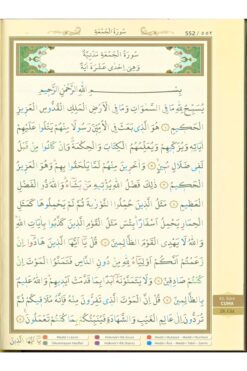 سُورَةُ الْجُمُعَةِ 552 / ٥٥٢
سُورَةُ الْجُمُعَةِ مَدَنِيَّةٌ
وَهِيَ اِحْدٰى عَشْرَةَ اٰيَةً
بِسْمِ اللّٰهِ الرَّحْمٰنِ الرَّحِيمِ
يُسَبِّحُ لِلّٰهِ مَا فِي السَّمٰوَاتِ وَمَا فِي الْاَرْضِ الْمَلِكِ الْقُدُّوسِ الْعَزِيزِ
الْحَكِيمِ هُوَ الَّذِي بَعَثَ فِي الْاُمِّيِّنَ رَسُولًا مِنْهُمْ يَتْلُوا عَلَيْهِمْ
اٰيَاتِهِ وَيُزَكِّيهِمْ وَيُعَلِّمُهُمُ الْكِتَابَ وَالْحِكْمَةَ وَاِنْ كَانُوا مِنْ قَبْلُ
لَفِي ضَلَالٍ مُبِينٍ وَاٰخَرِينَ مِنْهُمْ لَمَّا يَلْحَقُوا بِهِمْ وَهُوَ الْعَزِيزُ
الْحَكِيمُ ذٰلِكَ فَضْلُ اللّٰهِ يُؤْتِيهِ مَنْ يَشَاءُ وَاللّٰهُ ذُو الْفَضْلِ
الْعَظِيمِ مَثَلُ الَّذِينَ حُمِّلُوا التَّوْرٰيةَ ثُمَّ لَمْ يَحْمِلُوهَا كَمَثَلِ
الْحِمَارِ يَحْمِلُ اَسْفَارًا بِئْسَ مَثَلُ الْقَوْمِ الَّذِينَ كَذَّبُوا بِاٰيَاتِ اللّٰهِ
وَاللّٰهُ لَا يَهْدِي الْقَوْمَ الظَّالِمِينَ قُلْ يَا اَيُّهَا الَّذِينَ هَادُوا اِنْ
زَعَمْتُمْ اَنَّكُمْ اَوْلِيَاءُ لِلّٰهِ مِنْ دُونِ النَّاسِ فَتَمَنَّوُا الْمَوْتَ اِنْ
كُنْتُمْ صَادِقِينَ وَلَا يَتَمَنَّوْنَهُ اَبَدًا بِمَا قَدَّمَتْ اَيْدِيهِمْ وَاللّٰهُ عَلِيمٌ
بِالظَّالِمِينَ قُلْ اِنَّ الْمَوْتَ الَّذِي تَفِرُّونَ مِنْهُ فَاِنَّهُ مُلَاقِيكُمْ ثُمَّ
تُرَدُّونَ اِلٰى عَالِمِ الْغَيْبِ وَالشَّهَادَةِ فَيُنَبِّئُكُمْ بِمَا كُنْتُمْ تَعْمَلُونَ
CUMA